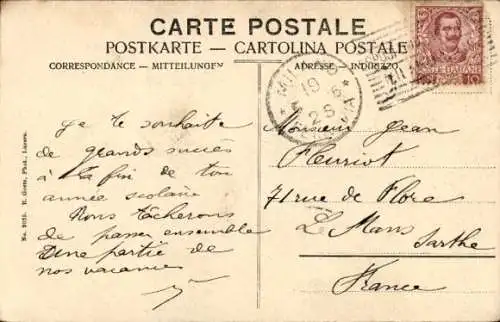 CARTE POSTALE
POSTKARTE – CARTOLINA POSTALE
CORRESPONDANCE – MITTEILUNGEN
ADRESSE – INDIRIZZO
POSTE ITALIANE
MILANO
19
26 6
Monsieur Jean
Fleuriot
71 rue de Flore
Le Mans
Sarthe
France
Je te souhaite
de grands succès
à la fin de ton
année scolaire
Nous tâcherons
de passer ensemble
Une partie de
nos vacances
E. Goetz, Phot., Luzern.